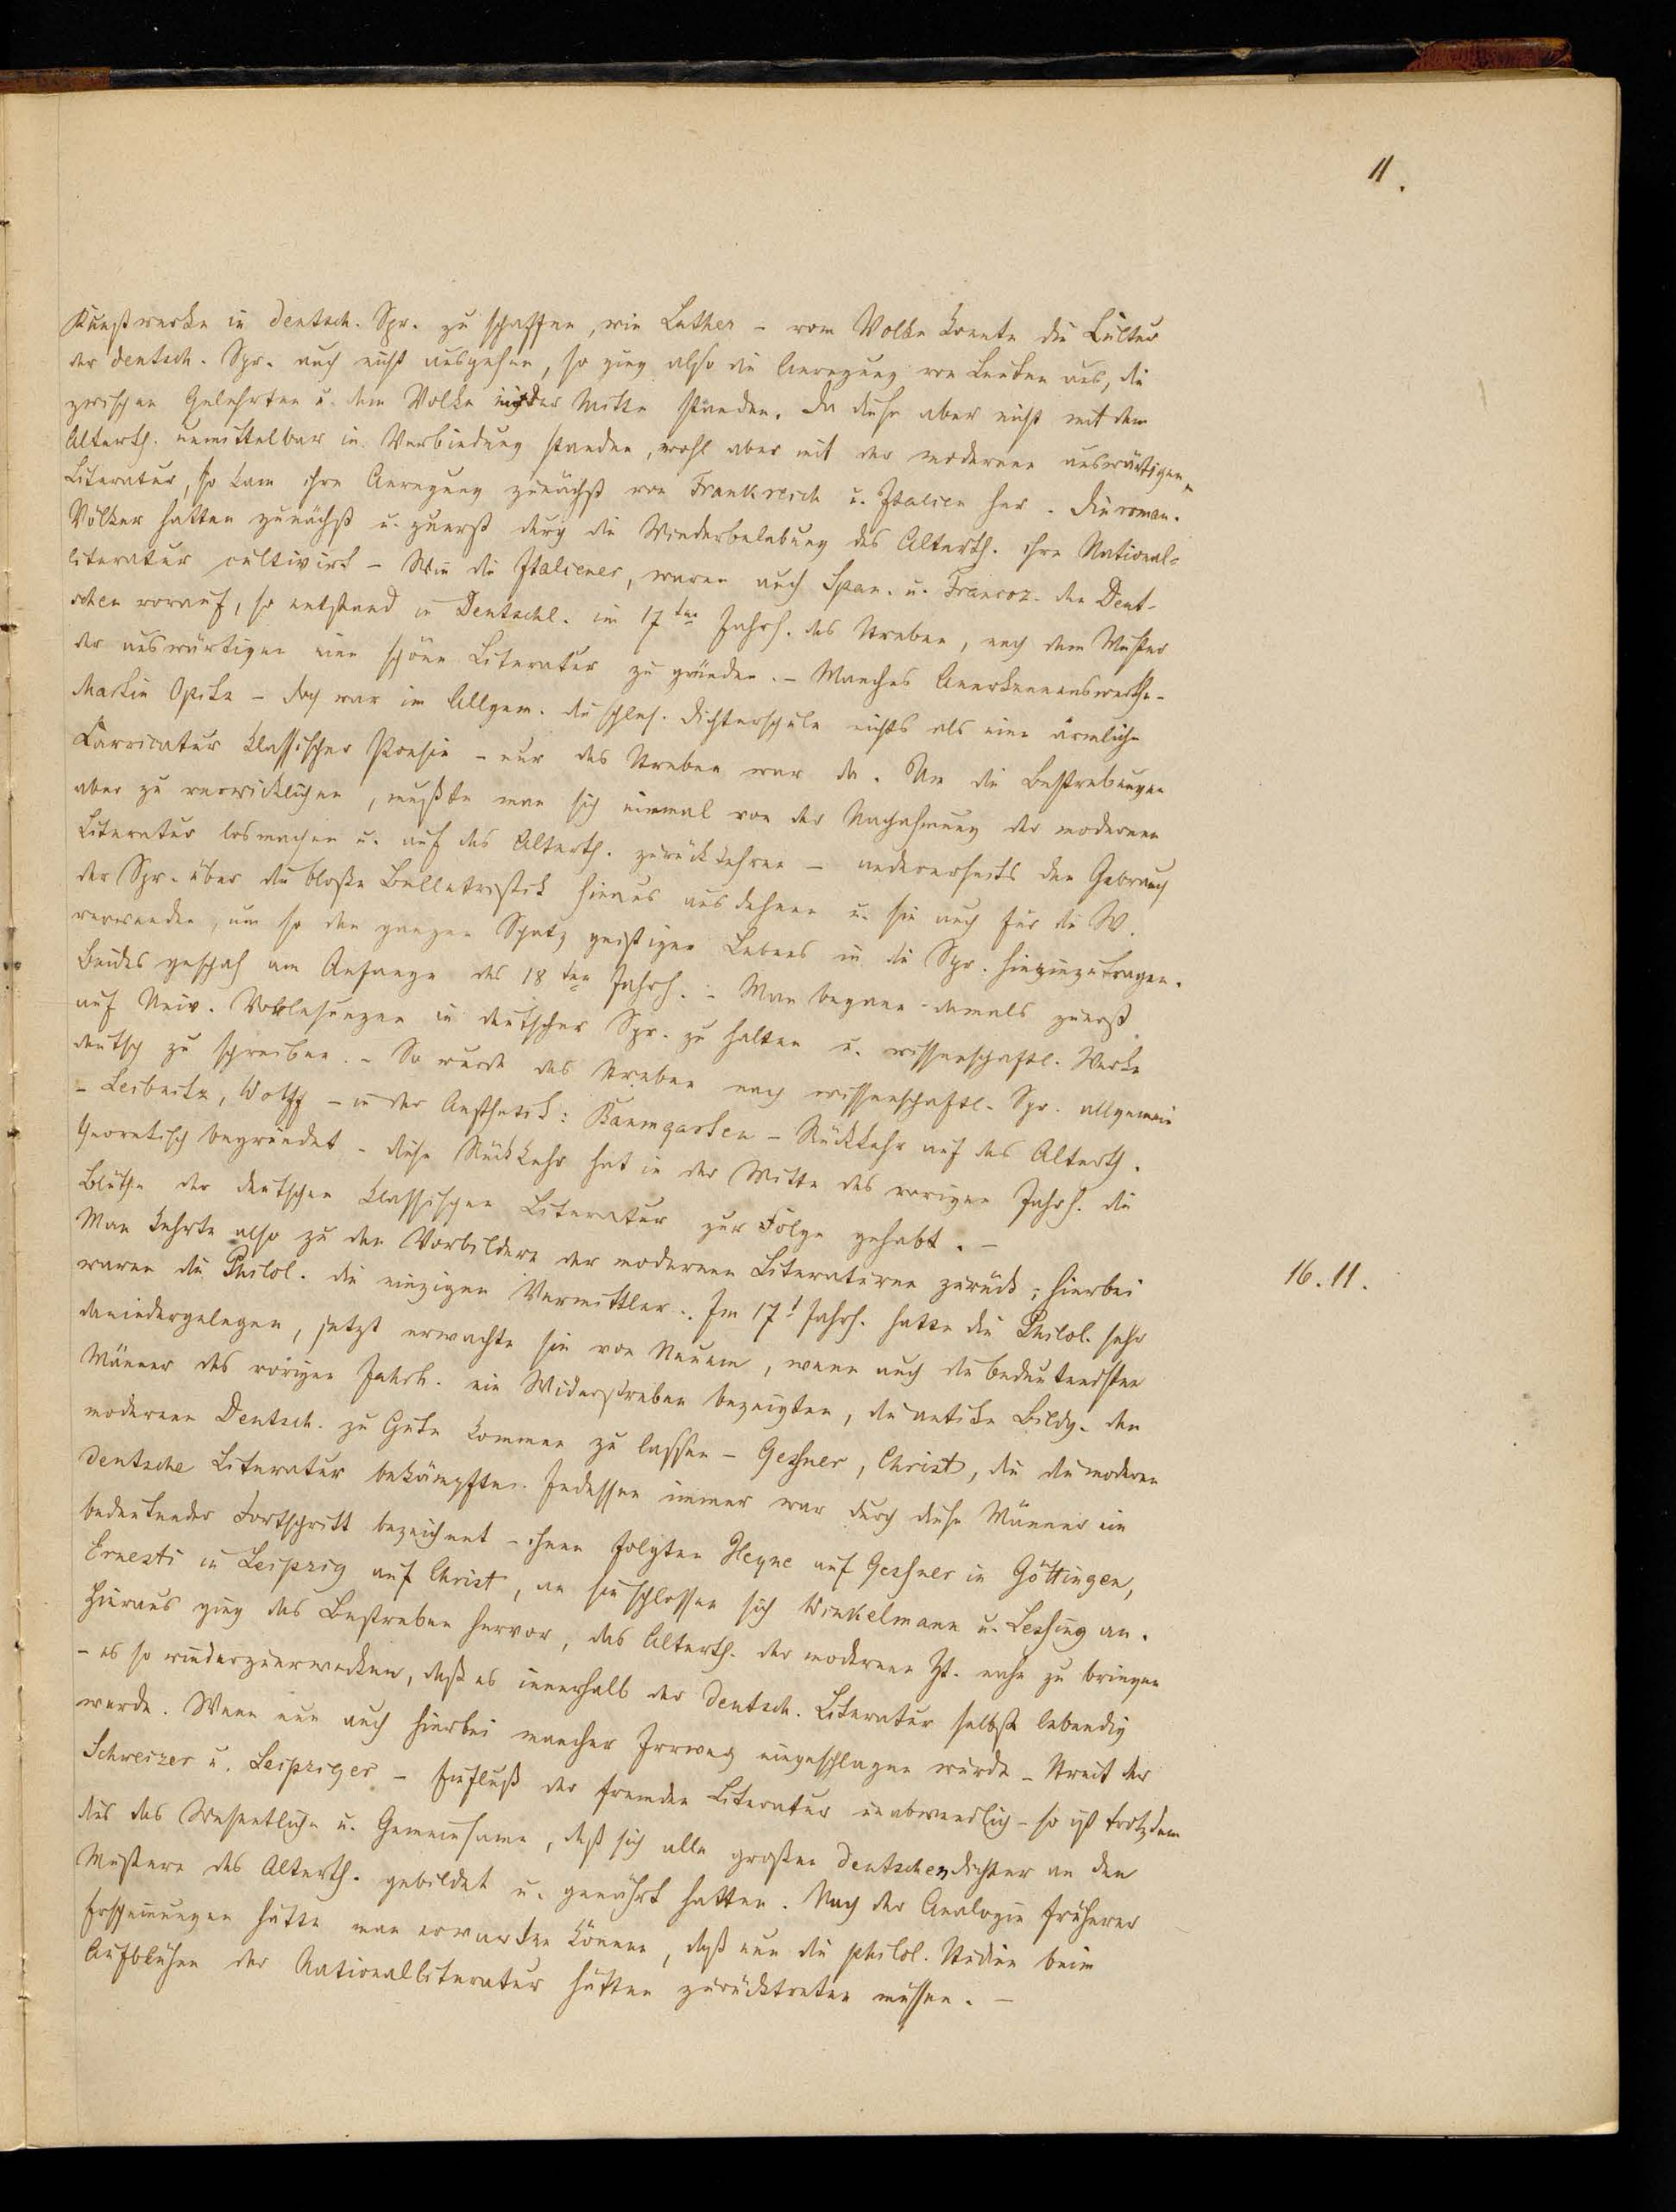 11.
Kunstwerke in deutsch. Spr. zu schaffen, wie Luther – vom Volke konnte die Cultur
der deutsch. Spr. auch nicht ausgehen, so ging also die Anregung von Leuten aus, die
zwischen Gelehrten u. dem Volke in der Mitte standen. Da diese aber nicht mit dem
Alterth. unmittelbar in Verbindung standen, wohl aber mit der modernen auswärtigen
Literatur, so kam ihre Anregung zunächst von Frankreich u. Italien her. Die roman.
Völker hatten zunächst u. zuerst durch die Wiederbelebung des Alterth. ihre National-
literatur cultivirt – Wie die Italiener, waren auch Span. u. Franzoz. den Deut-
schen vorauf, so entstand in Deutschl. im 17ten Jahrh. das Streben, nach dem Muster
der auswärtigen eine schöne Literatur zu gründen. – Manches Anerkennenswerthe –
Martin Opitz – doch war im Allgem. die schles. Dichterschule nichts als eine ärmliche
Carricatur klassischer Poesie – nur das Streben war da. Um die Bestrebungen
aber zu verwirklichen, mußte man sich einmal von der Nachahmung der modernen
Literatur losmachen u. auf das Alterth. zurückkehren – andererseits den Gebrauch
der Spr. über die bloße Belletristik hinaus ausdehnen u. sie auch für die W.
verwenden, um so den ganzen Schatz geistigen Lebens in die Spr. hineinzutragen.
Beides geschah am Anfange des 18ten Jahrh. – Man begann damals zuerst
auf Univ. Vorlesungen in deutscher Spr. zu halten u. wissenschaftl. Werke
deutsch zu schreiben. – So wurde das Streben nach wissenschaftl. Spr. allgemein
– Leibnitz, Wolff – in der Aesthetik: Baumgarten – Rückkehr auf das Alterth.
theoretisch begründet – diese Rückkehr hat in der Mitte des vorigen Jahrh. die
Blüthe der deutschen klassischen Literatur zur Folge gehabt. –
Man kehrte also zu den Vorbildern der modernen Literaturen zurück; hierbei
16.11.
waren die Philol. die einzigen Vermittler. Im 17t Jahrh. hatte die Philol. sehr
daniedergelegen, jetzt erwachte sie von Neuem, wenn auch die bedeutendsten
Männer des vorigen Jahrh. ein Widerstreben bezeigten, die antike Bildg. den
modernen Deutsch. zu Gute kommen zu lassen – Geßner, Christ, die die moderne
deutsche Literatur bekämpften. Indessen immer war durch diese Männer ein
bedeutender Fortschritt bezeichnet – ihnen folgten Heyne auf Geßner in Göttingen,
Ernesti in Leipzig auf Christ, an sie schlossen sich Winkelmann u. Leßing an.
Hieraus ging das Bestreben hervor, das Alterth. der modernen Zt. nahe zu bringen
– es so wiederzuerwecken, daß es innerhalb der deutsch. Literatur selbst lebendig
werde. Wenn nun auch hierbei mancher Irrweg eingeschlagen wurde – Streit der
Schweizer u. Leipziger – Einfluß der fremden Literatur unabwendlich – so ist trotzdem
dies das Wesentliche u. Gemeinsame, daß sich alle großen deutschen Dichter an den
Mustern des Alterth. gebildet u. genährt hatten. Nach der Analogie früherer
Erscheinungen hätte man erwarten können, daß nun die philol. Studien beim
Aufblühen der Nationalliteratur hätten zurücktreten müssen. –